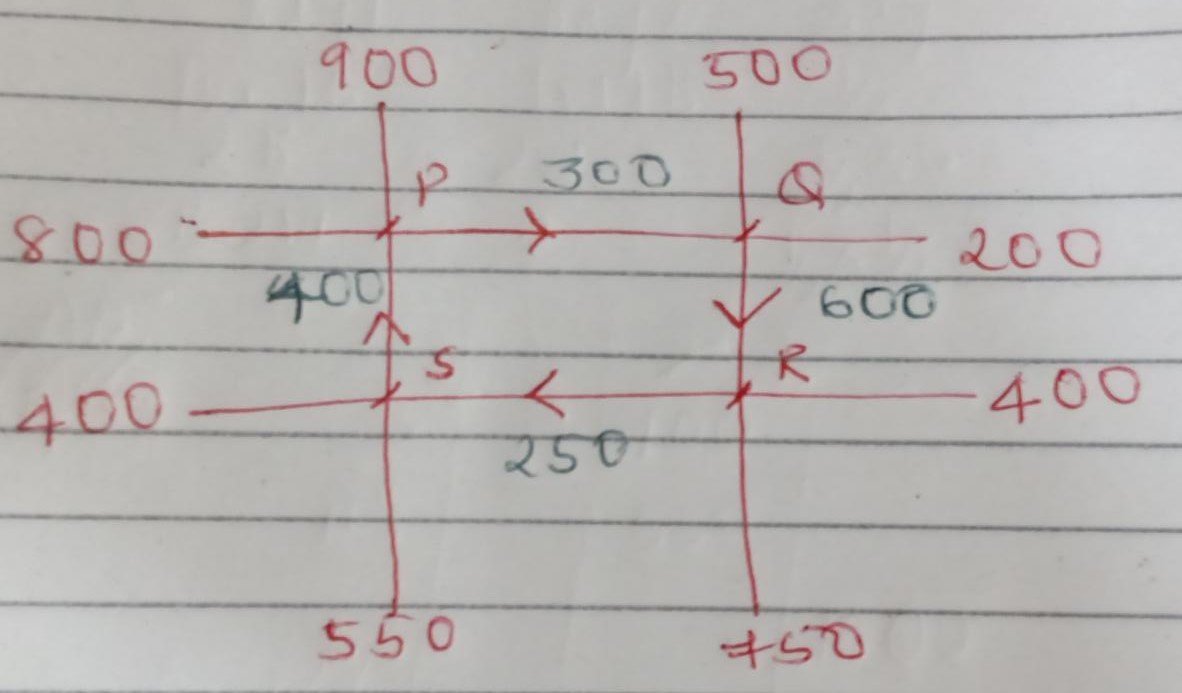 900 500
P 300 Q
800 200
400 600
S R
400 400
250
550 750